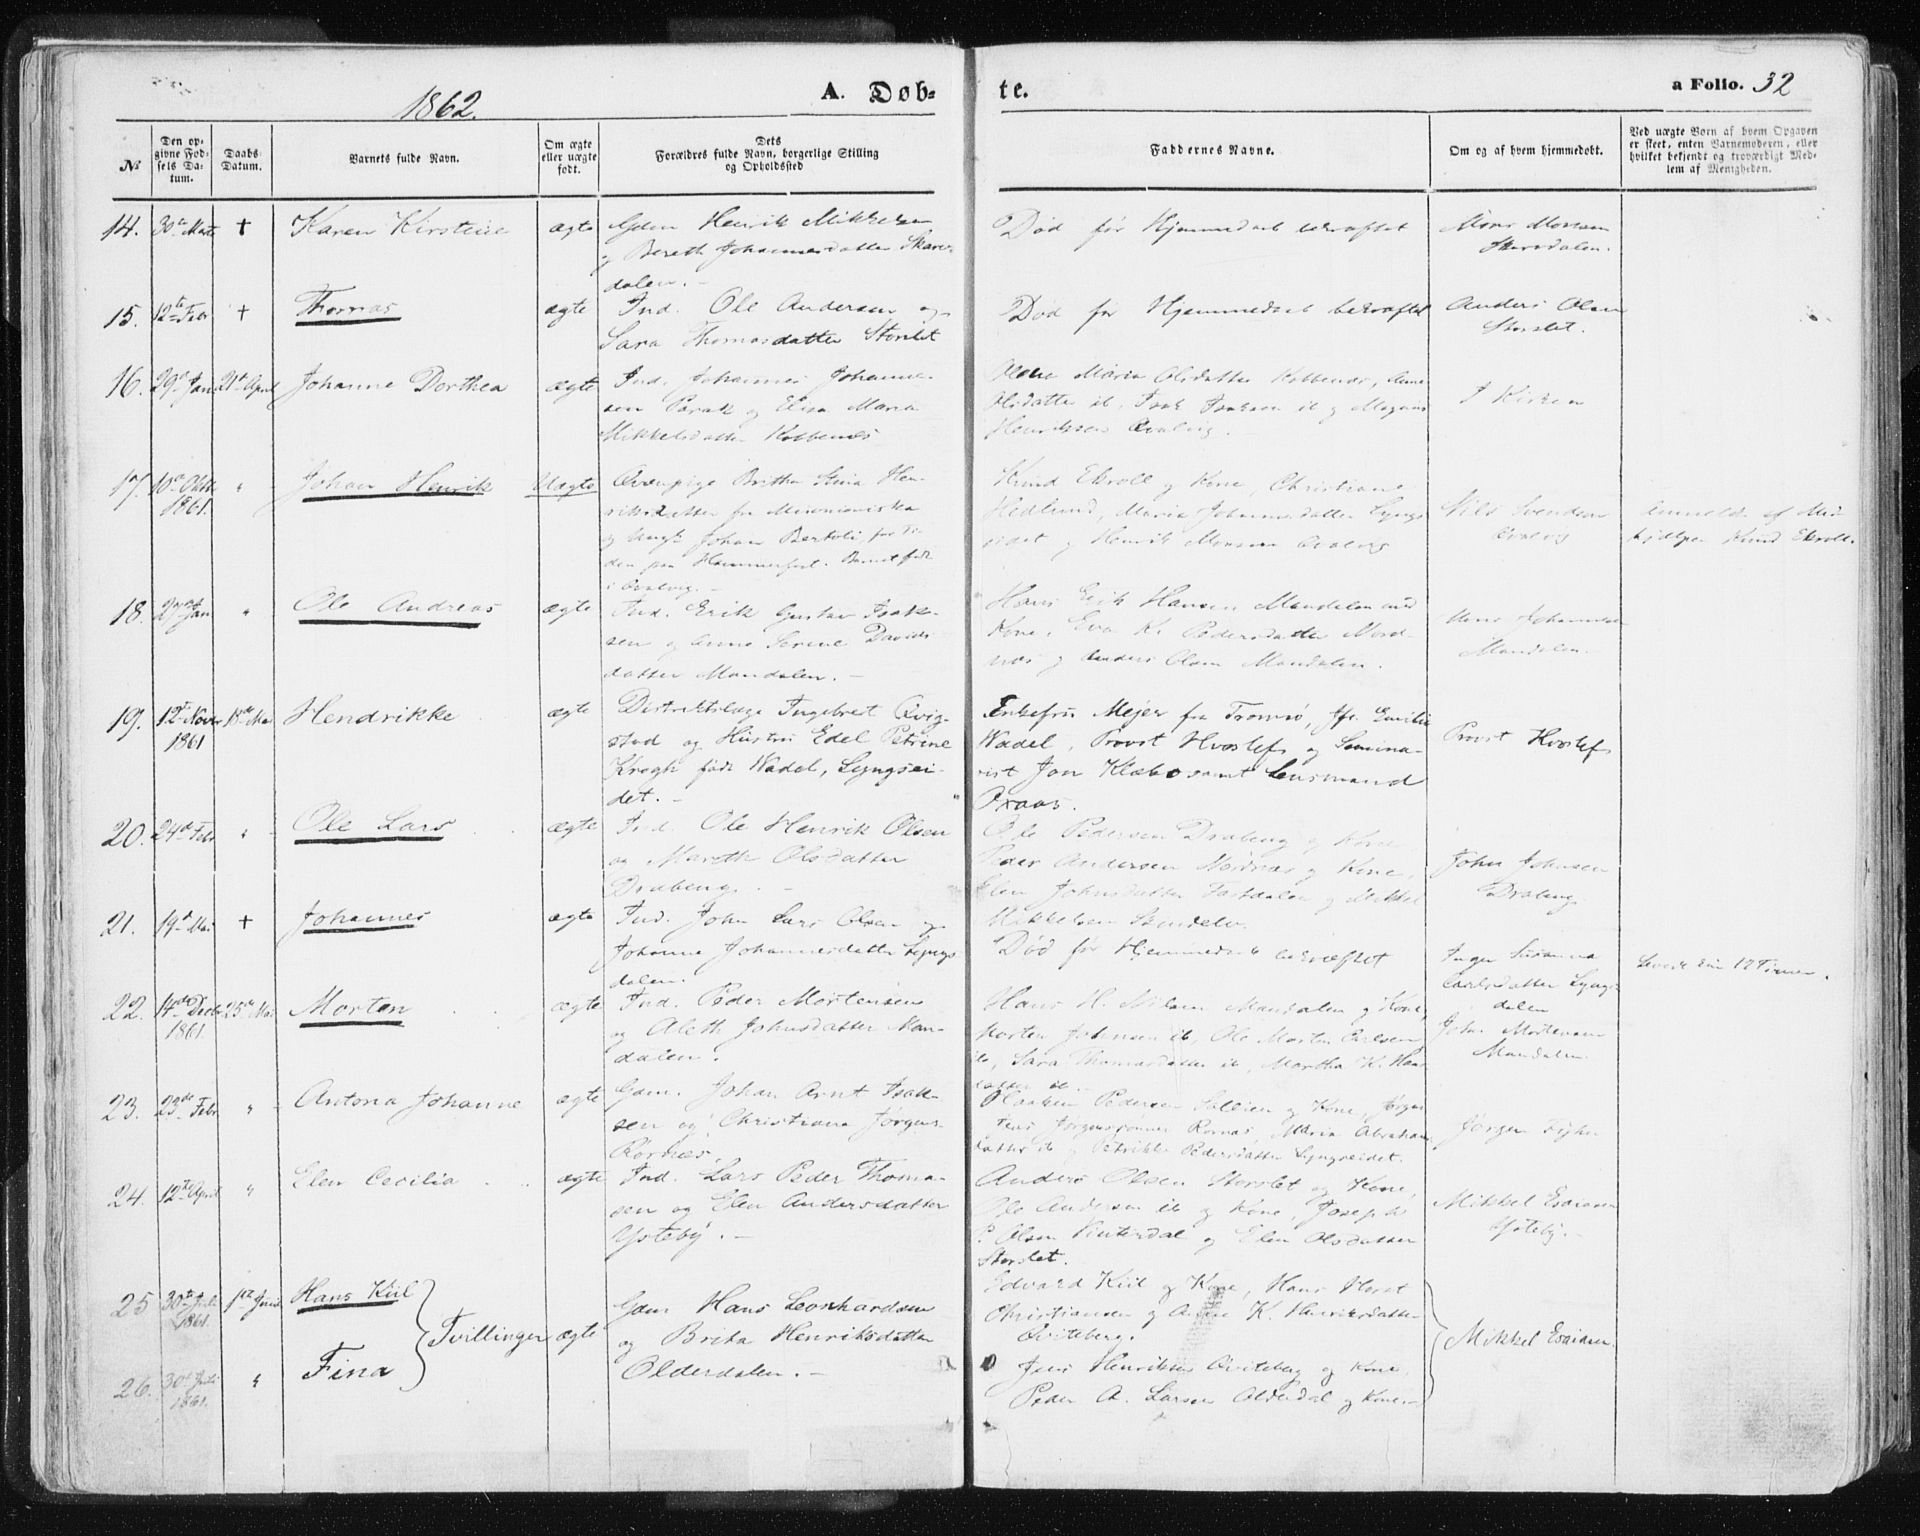 1862.
A. Døb-
te.
a Folio. 32
№
Den op-
givne Fød-
sels Da-
tum.
Daabs-
Datum.
Barnets fulde Navn.
Om ægte
eller uægte
født.
Dets
Forældres fulde Navn, borgerlige Stilling
og Opholdssted
Faddernes Navne.
Om og af hvem hjemmedøbt.
Ved uægte Børn af hvem Opgaven
er skeet, enten Barnemoderen, eller
hvilket bekjendt og troværdigt Med-
lem af Menigheden.
14. 30te Marts + Karen Kirstine ægte
Gdm Henrik Mikkelsen
og Bereth Johannesdatter Skavs-
dalen. -
Død før Hjemmedaab bekræftet
Mons Monsen
15. 12te Febr + Thomas ægte
Ind. Ole Andersen og
Sara Thomasdatter Storslet
Død før Hjemmedaab bekræftet
Anders Olsen
Storslet.
16. 29de Jan 21de April Johanne Dorthea ægte
Ind. Johannes Johanne-
sen Parak og Elisa Maria
Mikkelsdatter Kobbenæs
Olene Maria Olsdatter Kobbenæs, Anne
Olsdatter ib, Isak Isaksen ib og Magnus
Henriksen Qvalvig. -
I Kirken
17. 10de Oktbr
1861. " Johan Henrik Uægte
Qvænpige Britha Stina Hen-
riksdatter fra Muonioniska
og Ungk. Johan Bertoli, for Ti-
den paa Hammerfest. Barnet født
i Qvalvig. -
Knud Ekroll og Kone, Christiane
Hedlund, Maria Johannesdatter Lyngs
eidet og Henrik Monsen Qvalvig
Nils Svendsen
Qvalvig
Anmeldt af Med
hjælper Knud Ekroll.
18. 27de Jan " Ole Andreas ægte
Ind. Erik Gustav Isak-
sen og Anne Serine Davids
datter Mandalen. -
Hans Erik Hansen Mandalen med
Kone, Eva K. Pedersdatter Nord-
næs og Anders Olsen Mandalen.
Mons Johannesen
Mandalen. -
19. 12te Novbr
1861 18de Mai Hendrikke ægte
Distriktslæge Ingebret Qvig-
stad og Hustru Edel Petrine
Krogh født Wadel, Lyngsei-
det. -
Enkefru Mejer fra Tromsø, Jfr. Emilie
Wadel, Provst Hvoslef og Semina-
rist Jon Klæbo samt Lensmand
Oxaas.
Provst Hvoslef
20. 24de Febr " Ole Lars ægte
Ind. Ole Henrik Olsen
og Mareth Olsdatter
Drabeng. -
Ole Pedersen Drabeng og Kone
Peder Andersen Nordnæs og Kone,
Elen Johnsdatter Fastdalen og Mikkel
Mikkelsen Skindelv.
John Johnsen
Drabeng.
21. 19de Mai + Johannes ægte
Ind. John Lars Olsen og
Johanna Johannesdatter Lyngs
dalen.
Død før Hjemmedaab bekræftet
Inger Susanna
Carlsdatter Lyngs
dalen
Levede kun 12 Timer.
22. 14de Decbr
1861. 25de Mai Morten ægte
Ind. Peder Mortensen
og Aleth Johnsdatter Man-
dalen.
Hans H. Nilsen Mandalen og Kone,
Morten Johnsen ib, Ole Morten Carlsen
ib, Sara Thomasdatter ib, Martha K. Hans
datter ib -
John Mortensen
Mandalen.
23. 23de Febr " Antona Johanne ægte
Gdm. Johan Arnt Isak-
sen og Christiana Jørgens-
Rornæs.
Haaken Pedersen Sollien og Kone, Jørgen
Jens Jørgensønner Rornæs, Maria Abraham
datter ib og Petrikke Pedersdatter Lyngseidet.
Jørgen
24. 12te April " Elen Cecilia ægte
Ind. Lars Peder Thoma-
sen og Elen Andersdatter
Ysteby. -
Anders Olsen Storslet og Kone,
Ole Andersen ib og Kone, Joseph
P. Olsen Vinterdal og Elen Olsdatter
Storslet.
Mikkel Esaiasen
25 30te Juli
1861. 1ste Juni Hans Kiil
Tvillinger ægte
Gdm Hans Leonhardsen
og Brita Henriksdatter
Olderdalen. -
Edvard Kiil og Kone, Hans Horst
Christiansen og Anne K. Henriksdatter
Qviteberg.
Mikkel Esaiasen
26. 30te Juli
1861. " Fina
Jens Henriksen Qviteberg og Kone,
Peder A. Larsen Olderdal og Kone. -